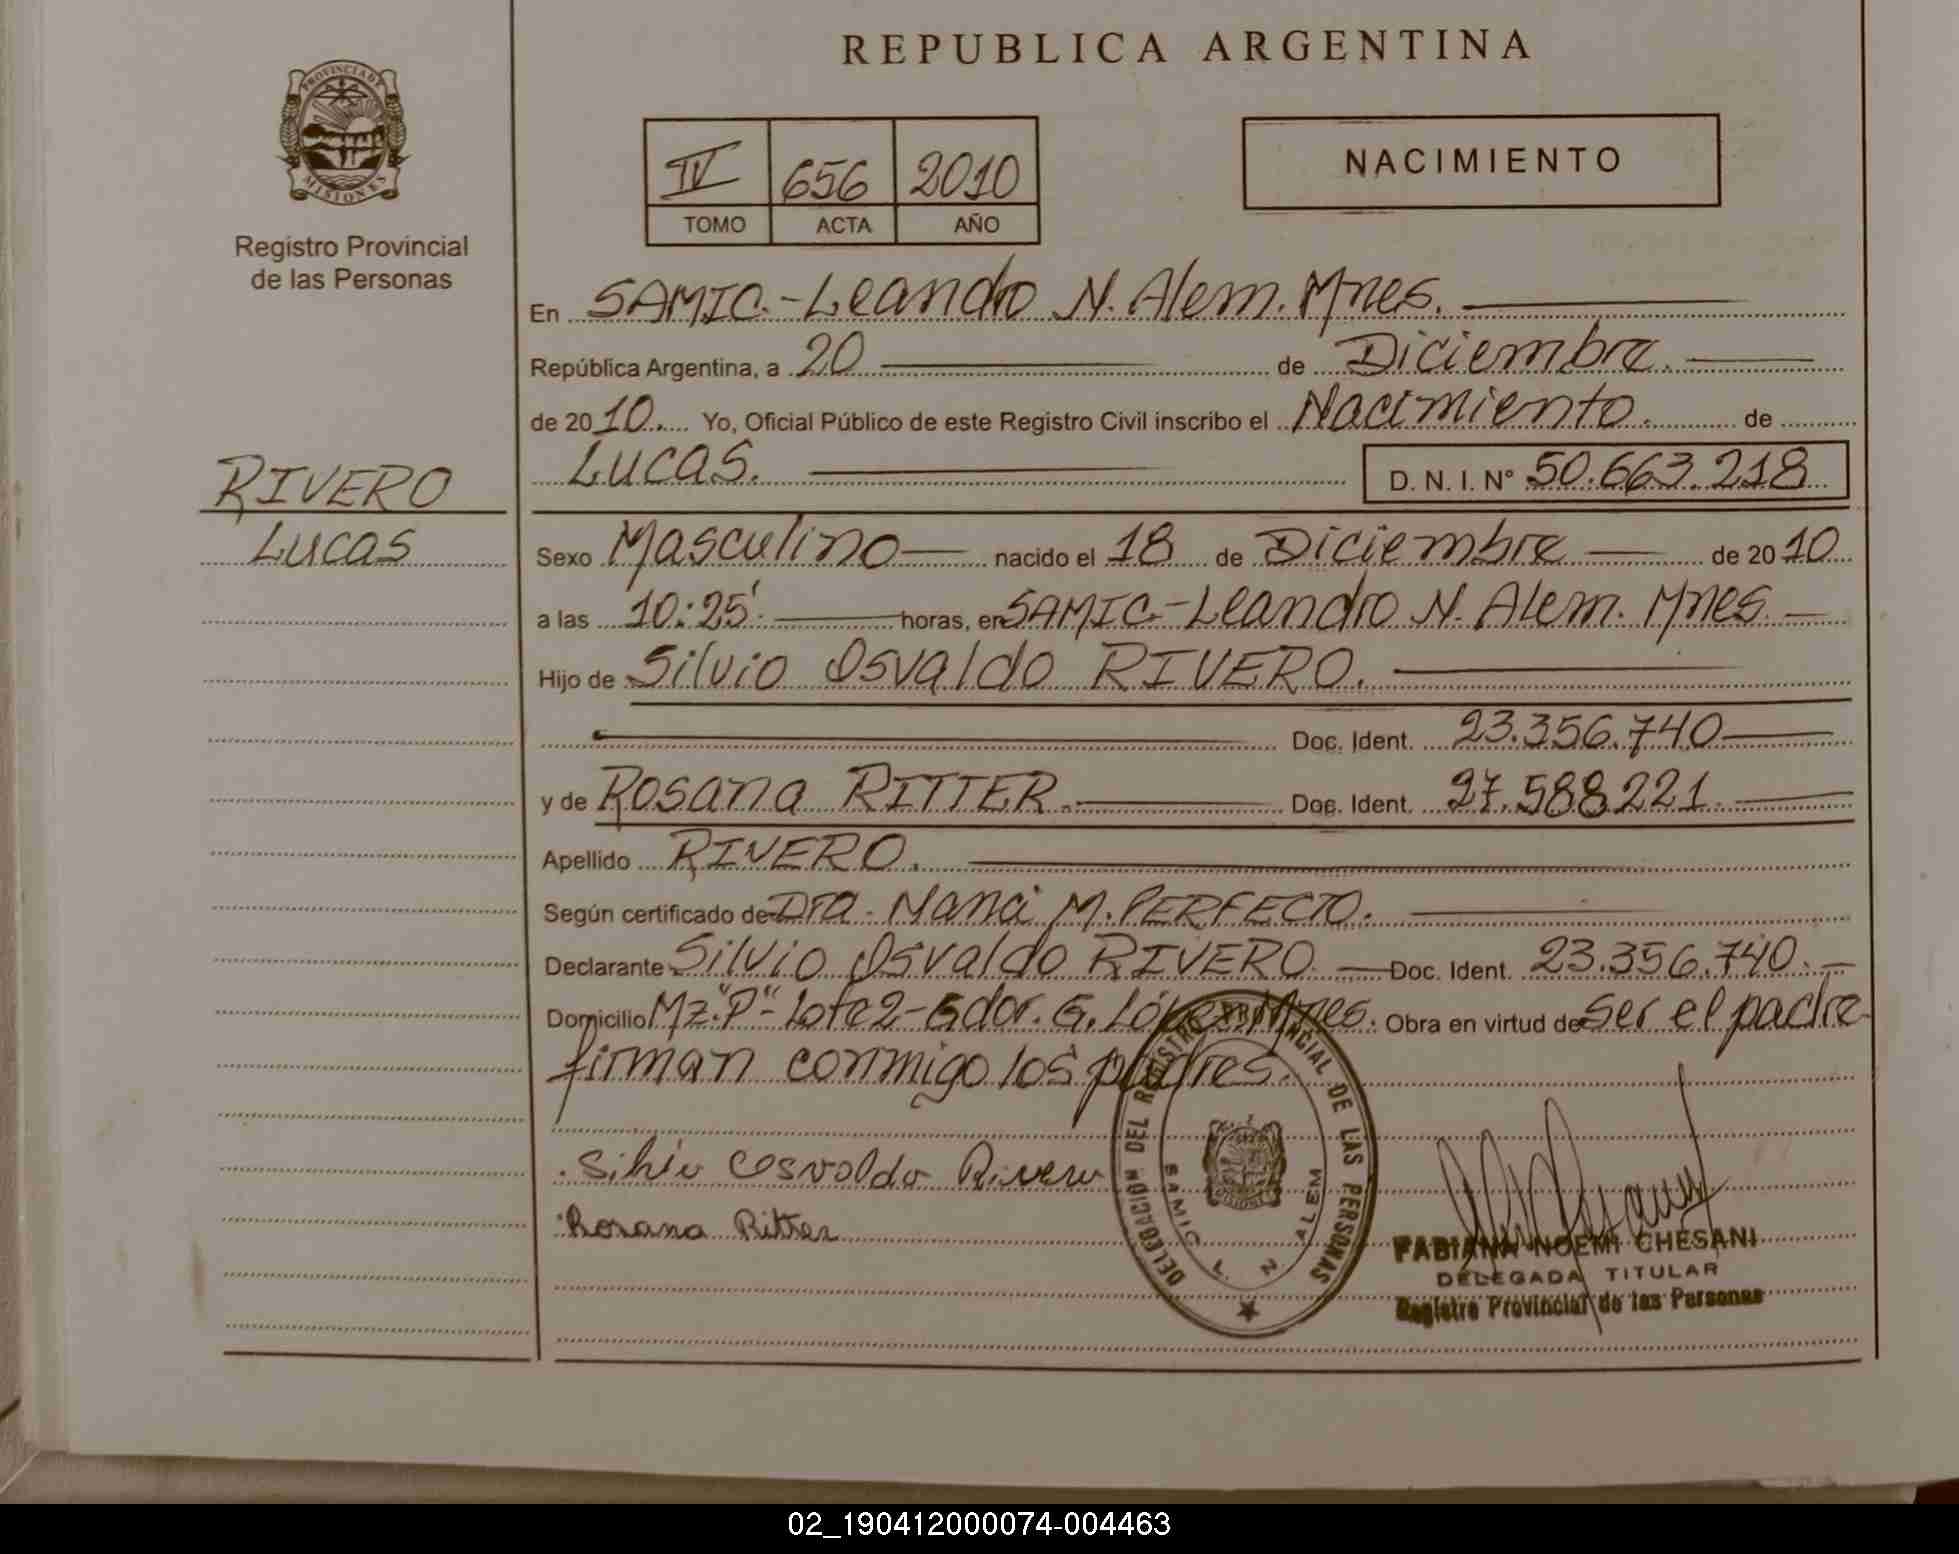 REPUBLICA ARGENTINA
PROVINCIA DE
MISIONES
Registro Provincial
de las Personas
IV 656 2010
TOMO ACTA AÑO
NACIMIENTO
En SAMIC.-Leandro N. Alem. Mnes.
República Argentina, a 20 de Diciembre.
de 2010. Yo, Oficial Público de este Registro Civil inscribo el Nacimiento. de
LUCAS. D. N. I. N° 50.663.218
RIVERO
LUCAS
Sexo Masculino nacido el 18 de Diciembre de 2010
a las 10:25' horas, en SAMIC-Leandro N. Alem. Mnes.
Hijo de Silvio Osvaldo RIVERO.
Doc. Ident. 23.356.740
y de Rosana RITTER. Doc. Ident. 27.588.221.
Apellido RIVERO.
Según certificado de Dra. Nanci M. PERFECTO.
Declarante Silvio Osvaldo RIVERO Doc. Ident. 23.356.740.
Domicilio Mz."P"- Lote 2-Gdor. G. López Mnes. Obra en virtud de ser el padre
firman conmigo los padres.
Silvio Osvaldo Rivero
Rosana Ritter
DELEGACION DEL REGISTRO PROVINCIAL DE LAS PERSONAS
SAMIC L. N ALEM
FABIANA NOEMI CHESANI
DELEGADA TITULAR
Registro Provincial de las Personas
02_190412000074-004463